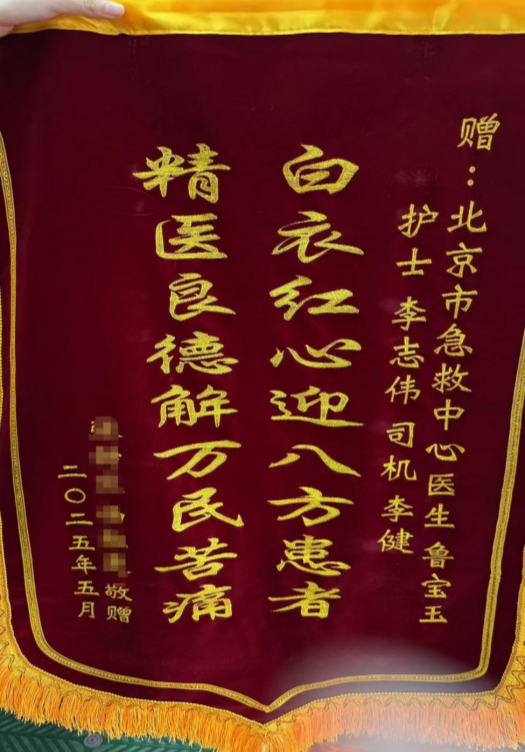 赠：北京市急救中心医生鲁宝玉
护士李志伟司机李健
白衣红心迎八方患者
精医良德解万民苦痛
敬赠
二〇二五年五月